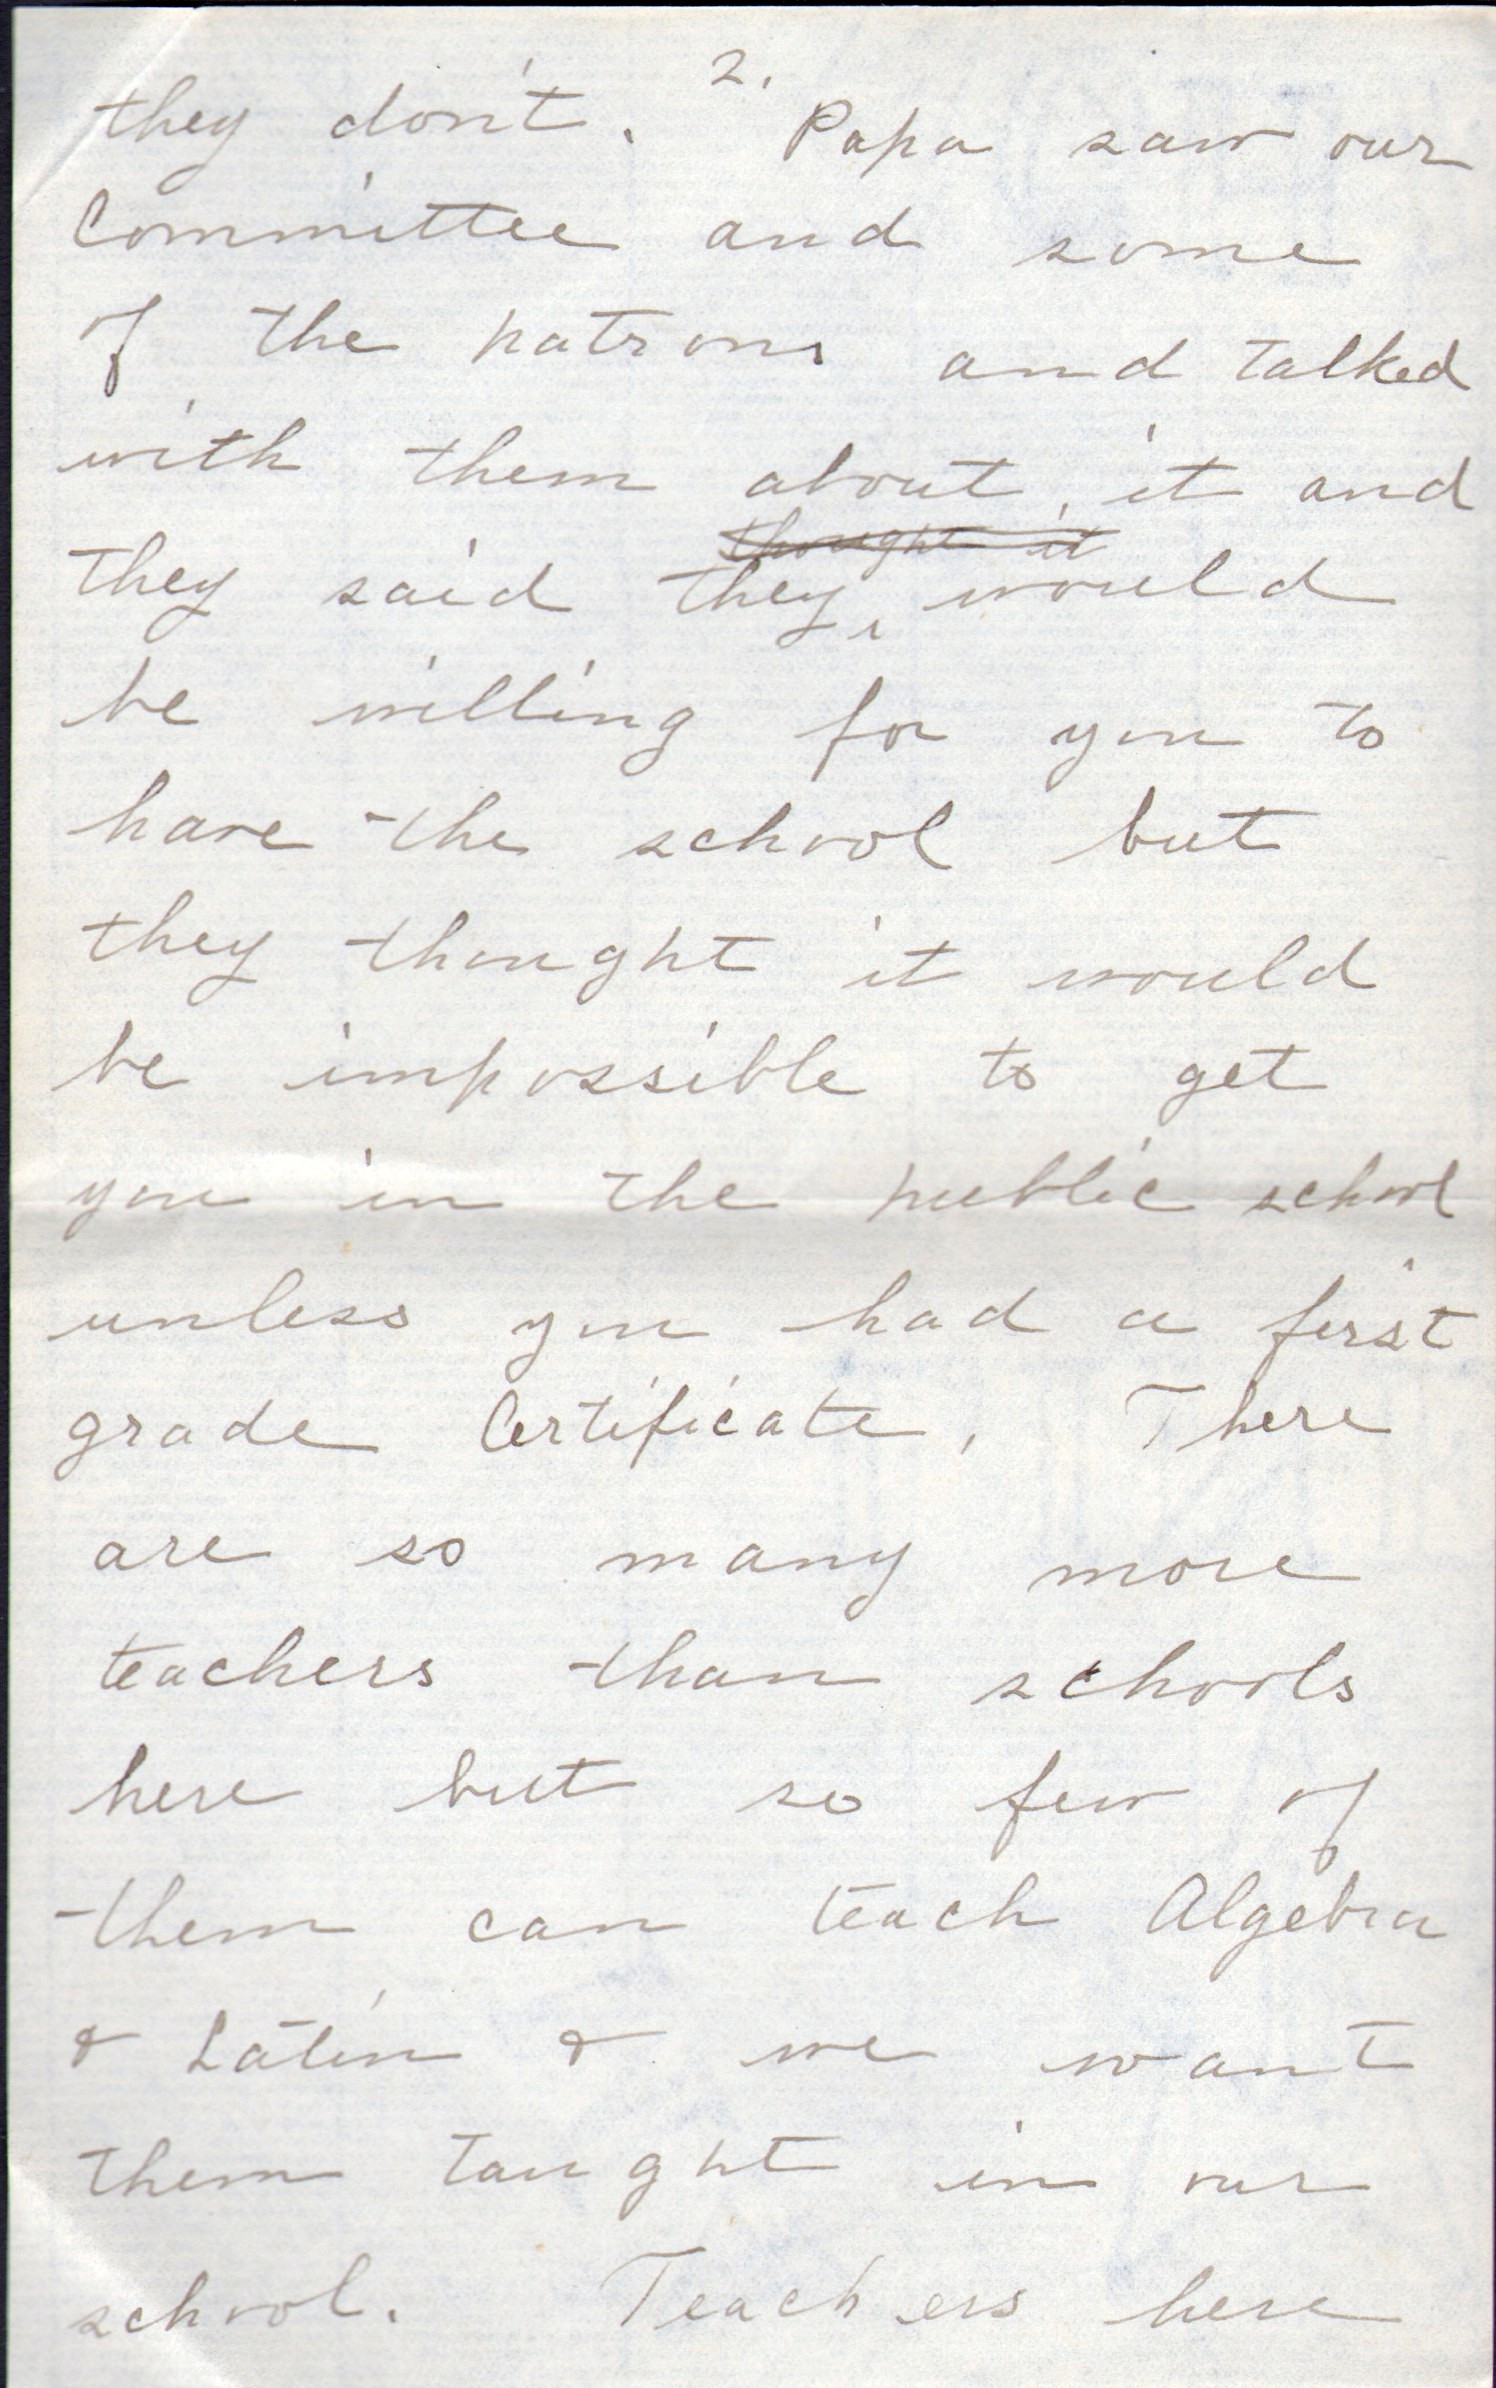 2.
they don't. Papa saw our
Committee and some
of the patrons and talked
with them about it and
thought it
they said they would
be willing for you to
have the school but
they thought it would
be impossible to get
you in the public school
unless you had a first
grade Certificate. There
are so many more
teachers than schools
here but so few of
them can teach Algebra
& Latin & we want
them taught in our
school. Teachers here